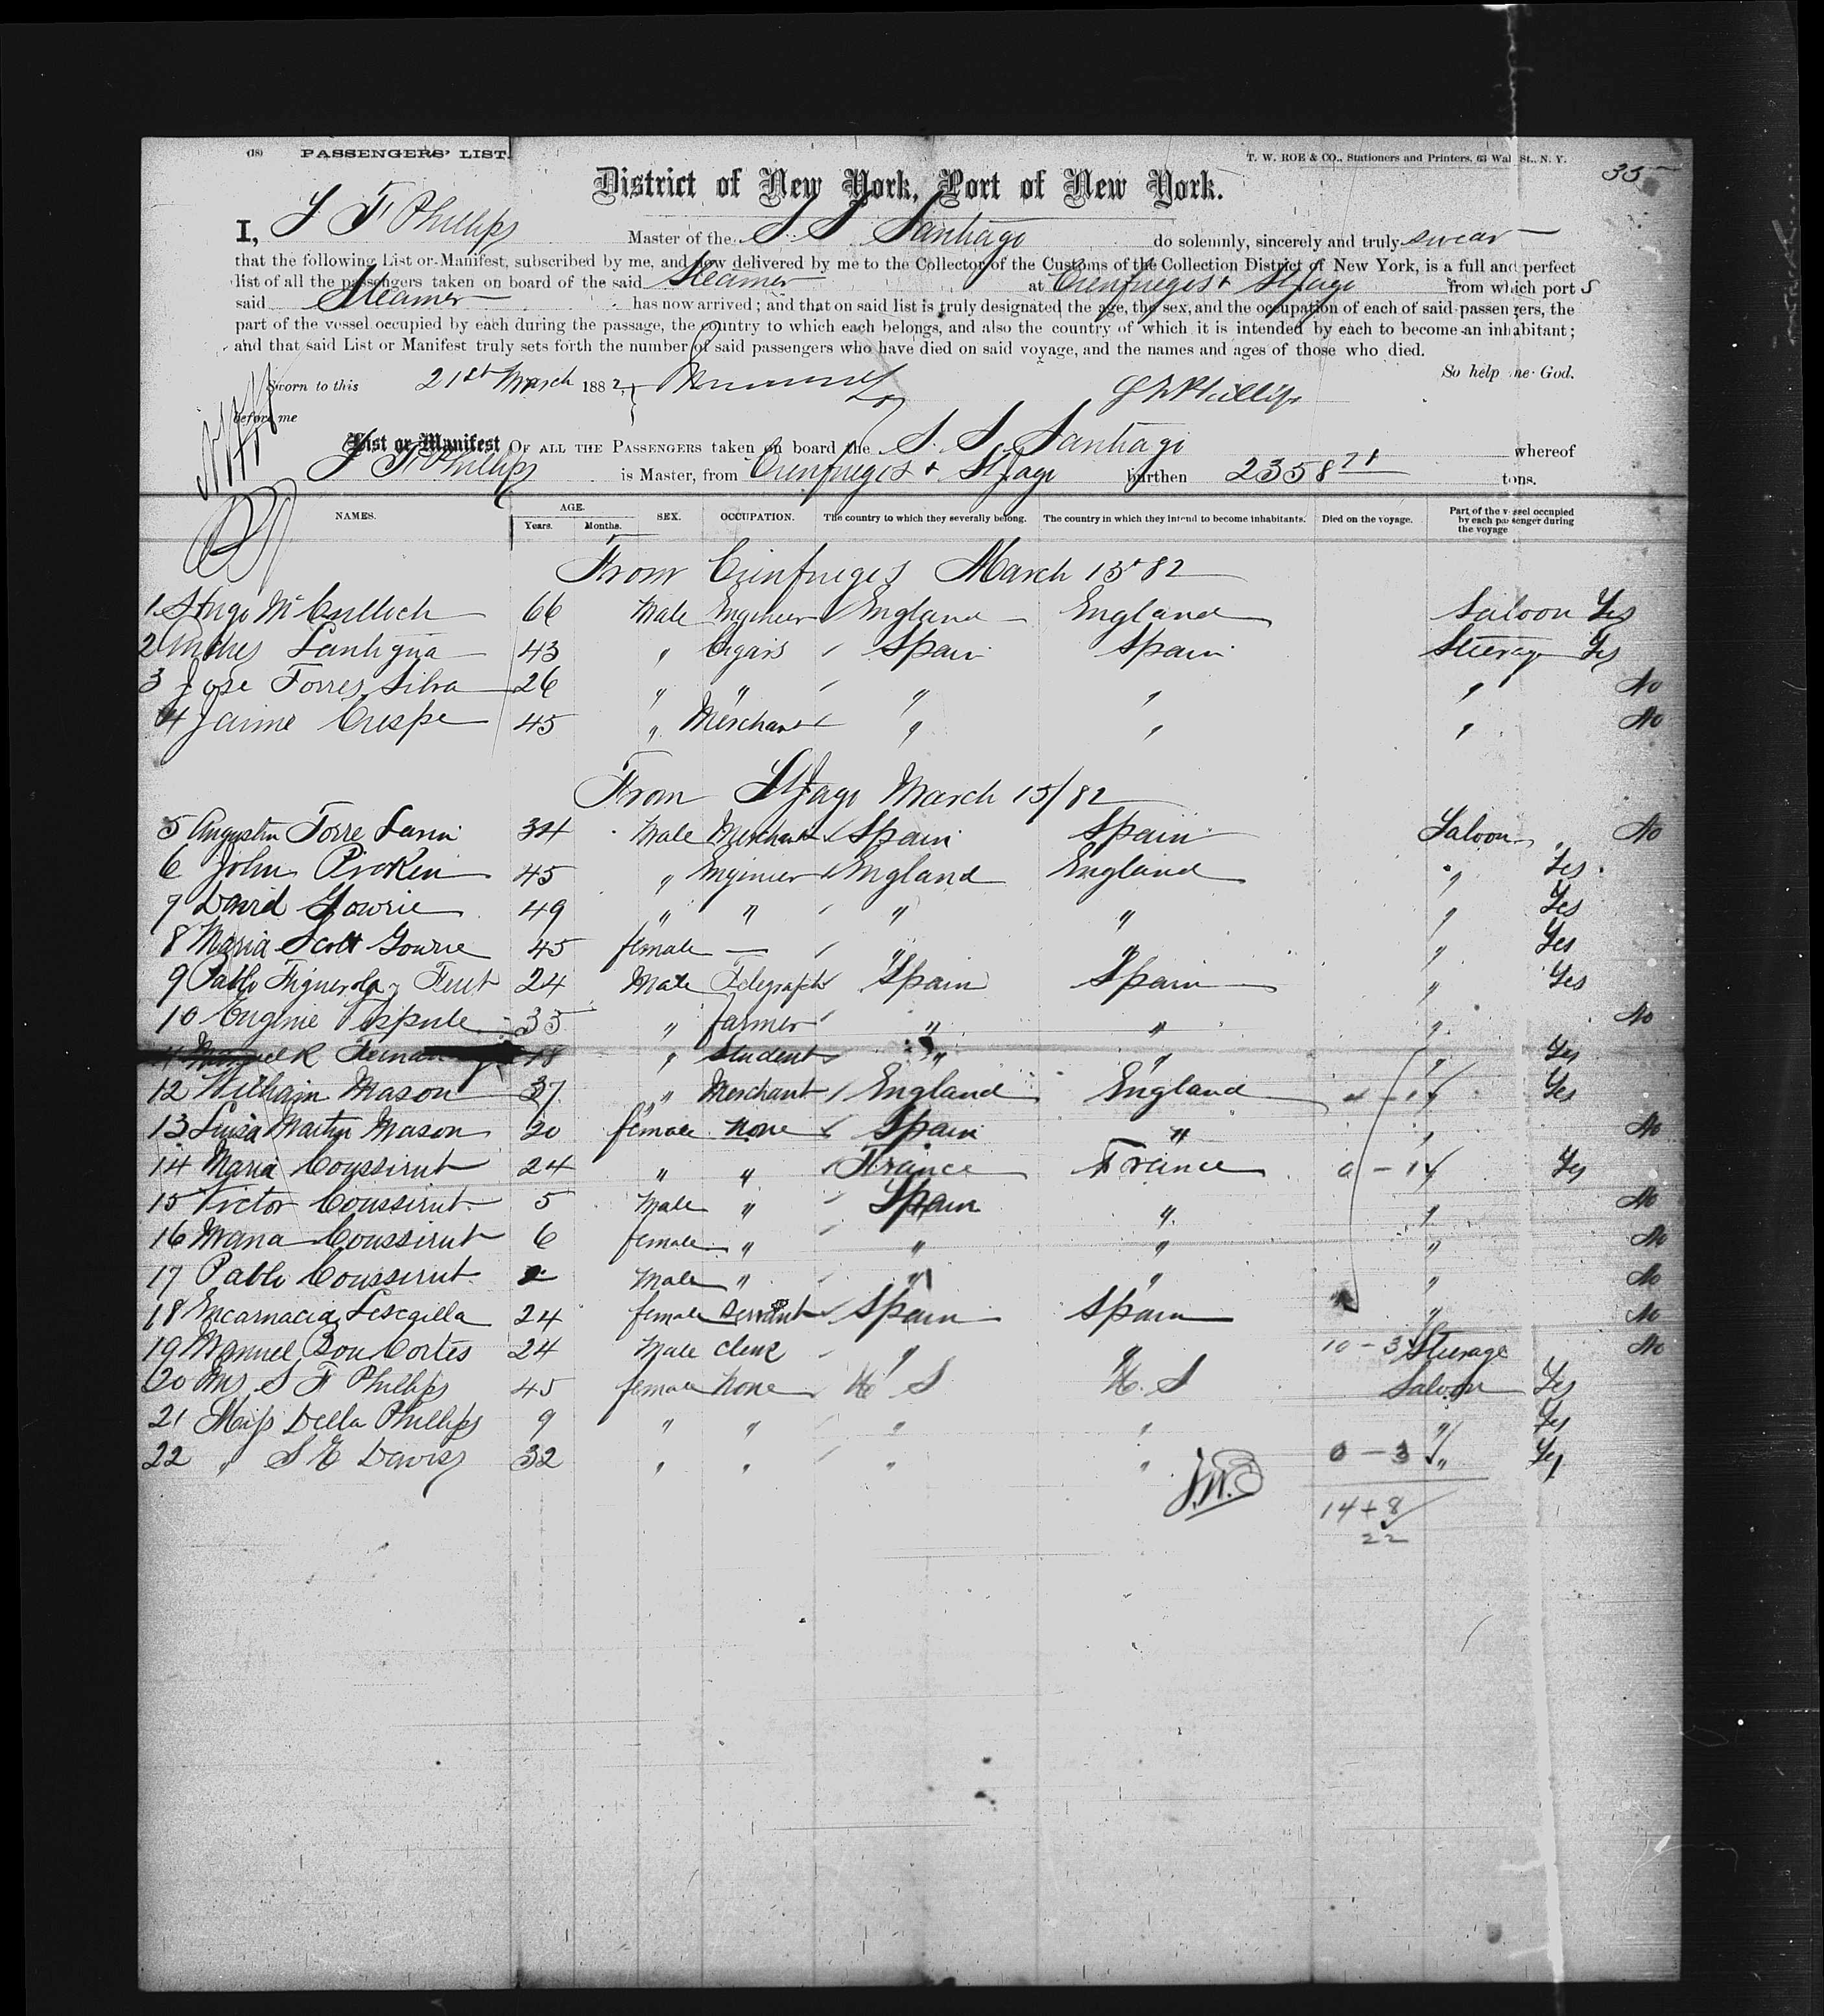 (18) PASSENGERS' LIST.
T. W. ROE & CO., Stationers and Printers, 63 Wall St., N. Y.
35
District of New York, Port of New York.
I, S F Phillips Master of the S S Santiago do solemnly, sincerely and truly swear
that the following List or Manifest, subscribed by me, and now delivered by me to the Collector of the Customs of the Collection District of New York, is a full and perfect
list of all the passengers taken on board of the said Steamer at Cienfuegos & St Jago from which port s
said Steamer has now arrived; and that on said list is truly designated the age, the sex, and the occupation of each of said passengers, the
part of the vessel occupied by each during the passage, the country to which each belongs, and also the country of which it is intended by each to become an inhabitant;
and that said List or Manifest truly sets forth the number of said passengers who have died on said voyage, and the names and ages of those who died.
So help me God.
Sworn to this 21st March 1882
before me
S F Phillips
List or Manifest OF ALL THE PASSENGERS taken on board the S. S. Santiago whereof
S F Phillips is Master, from Cienfuegos & St Jago burthen 2358 71 tons.
NAMES. AGE. Years. Months. SEX. OCCUPATION. The country to which they severally belong. The country in which they intend to become inhabitants. Died on the voyage. Part of the vessel occupied by each passenger during the voyage
From Cienfuegos March 13 82
1 Hugo McCulloch 66 Male Engineer England England Saloon Yes
2 Santigua 43 " Cigars Spain Spain Steerage Yes
3 Jose Torres Silva 26 " " " " " No
4 Jaime Crespe 45 " Merchant " " " No
From St Jago March 15/82
5 Augustin Torre Sarri 34 Male Merchant Spain Spain Saloon No
6 John 45 " Enginier England England " Yes
7 David Gowrie 49 " " " " " Yes
8 Maria Scott Gowrie 45 female — " " " Yes
9 Pablo Figuerola y Ferret 24 Male Telegraph Spain Spain " Yes
10 Eugenie 35 " farmer " " " No
11 Manuel R 18 " Student " " " Yes
12 William Mason 37 " Merchant England England Yes
13 Luisa Martin Mason 20 female none Spain " " No
14 Maria Coussirut 24 " " France France 0 - 1 Yes
15 Victor Coussirut 5 Male " Spain " " No
16 Maria Coussirut 6 female " " " " No
17 Pablo Coussirut 2 Male " " " " No
18 Encarnacia Lescailla 24 female Servant Spain Spain " No
19 Manuel Bou Cortes 24 Male clerk " " 10 - 3 Steerage No
20 Mrs S F Phillips 45 female none U S U. S Saloon Yes
21 Miss Della Phillips 9 " " " " " Yes
22 " S E Davis 32 " " " " 0 - 3 " Yes
J.W.B
14 + 8
22